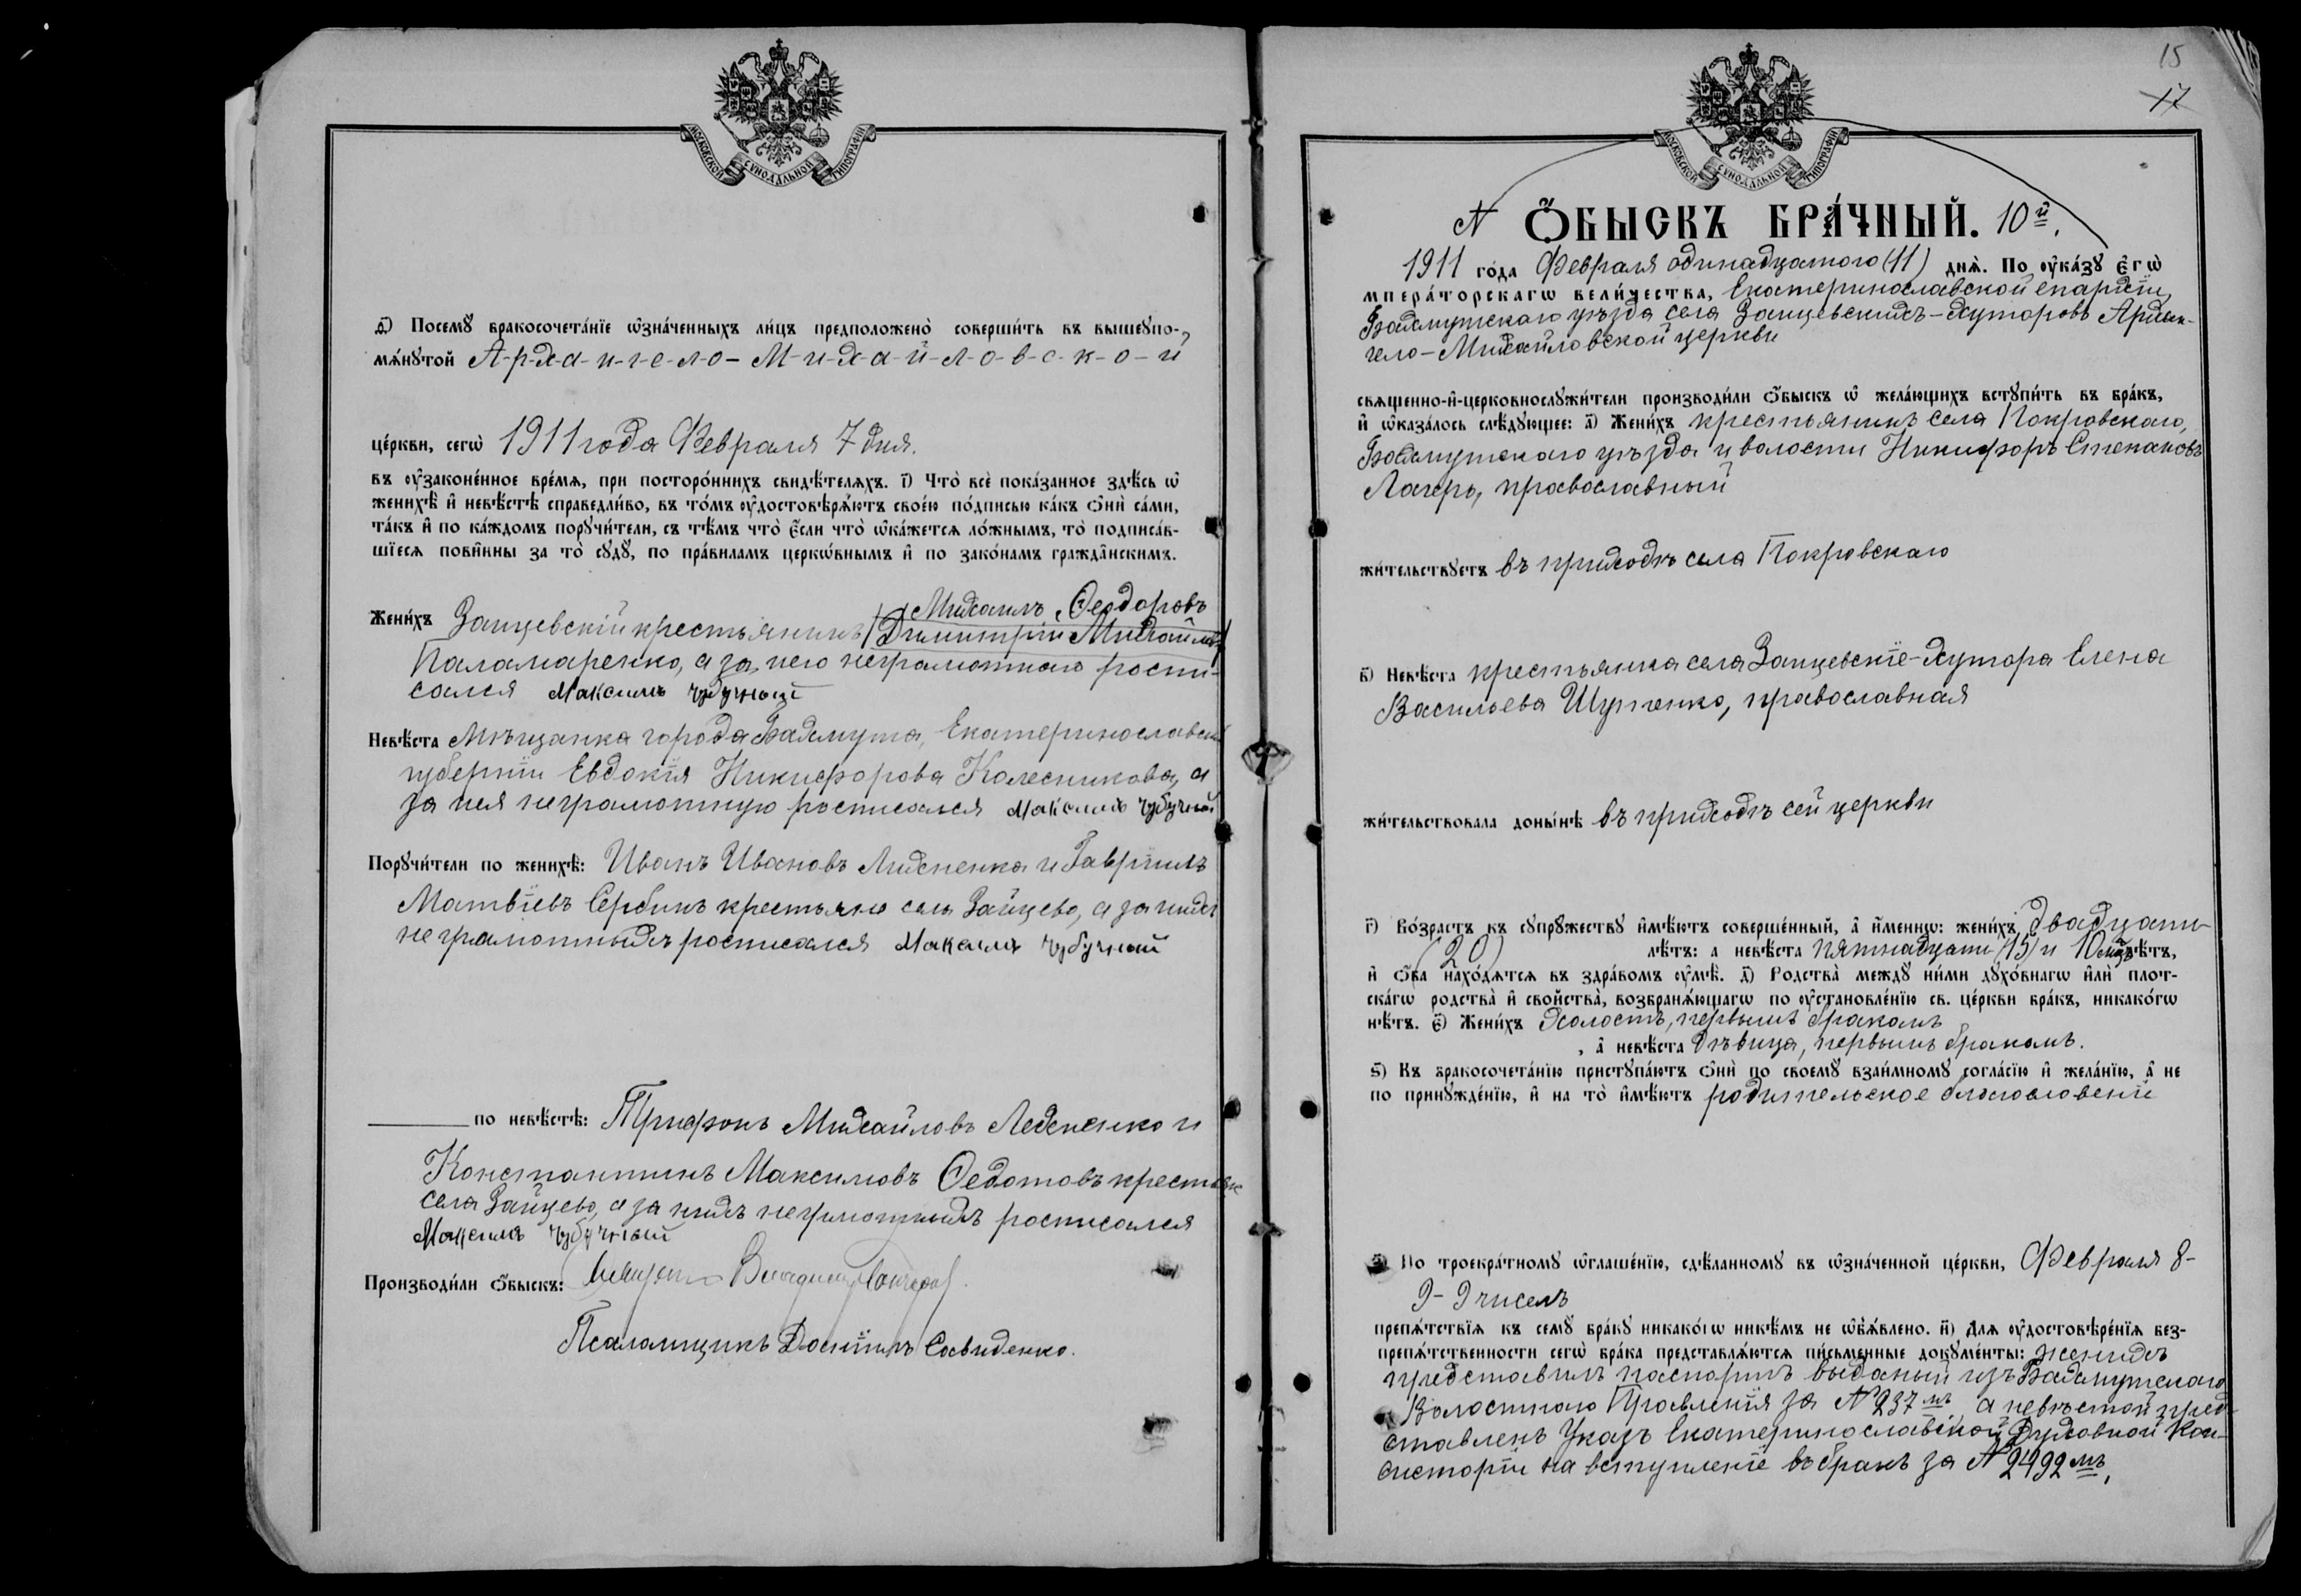 МОСКОВСКОЙ СѴНОДАЛЬНОЙ ТИПОГРАФІИ
д҃) Посемꙋ̀ бракосочета́нїе ѡ҆зна́ченныхъ ли́цъ предположено̀ соверши́ть въ вышеꙋпо-
мѧ́нꙋтой А-р-х-а-н-г-е-л-о-М-и-х-а-й-л-о-в-с-к-о-й
це́ркви, сегѡ̀ 1911 года Февраля 7 дня.
въ ᲂу҆зако́ненное вре́мѧ, при посторо́ннихъ свидѣ́телѧхъ. і҃) Что̀ всѐ пока́занное здѣ́сь ѡ҆
женихѣ̀ и҆ невѣ́стѣ справедли́во, въ то́мъ ᲂу҆достовѣрѧ́ютъ свое́ю по́дписью ка́къ ѻ҆нѝ са́ми,
та́къ и҆ по ка́ждомъ порꙋчи́тели, съ тѣ́мъ что̀ є҆́сли что̀ ѡ҆ка́жетсѧ ло́жнымъ, то̀ подписа́в-
шїесѧ пови́нны за то̀ сꙋдꙋ̀, по пра́виламъ церко́внымъ и҆ по зако́намъ гражда́нскимъ.
Михаилъ Ѳеодоровъ
Жени́хъ Зайцевскій крестьянинъ (Димитрій Михайловъ)
Паламаренко, а за него неграмотнаго роспи-
сался Максимъ Чубучный
Невѣ́ста Мѣщанка города Бахмута, Екатеринославской
губерніи Евдокія Никифорова Колесникова, а
за нея неграмотную росписался Максимъ Чубучный
Порꙋчи́тели по женихѣ̀: Иванъ Ивановъ Лихненка и Гавріилъ
Матвіевъ Сербинъ крестьяне села Зайцево, а за нихъ
неграмотныхъ росписался Максимъ Чубучный
по невѣ́стѣ: Трифонъ Михайловъ Леденко и
Константинъ Максимовъ Ѳедотовъ крестьяне
села Зайцево, а за нихъ неграмотныхъ росписался
Максимъ Чубучный
Производи́ли ѻ҆́быскъ:
Псаломщикъ Савиденко.
15
17
МОСКОВСКОЙ СѴНОДАЛЬНОЙ ТИПОГРАФІИ
N Ѻ҆́БЫСКЪ БРА́ЧНЫЙ. 10й.
1911 го́да Февраля одинадцатого (11) днѧ̀. По ᲂу҆ка́зꙋ Є҆гѡ̀
мпера́торскагѡ вели́чества, Екатеринославской епархіи,
Бахмутскаго уѣзда села Зайцевскихъ-Хуторовъ Архан-
гело-Михайловской церкви
свѧщенно-и҆-церковнослꙋжи́тели производи́ли ѻ҆́быскъ ѡ҆ жела́ющихъ встꙋпи́ть въ бра́къ,
и҆ ѡ҆каза́лось слѣ́дꙋющее: а҃) Жени́хъ крестьянинъ села Покровскаго,
Бахмутскаго уѣзда и волости Никифоръ Степановъ
Лагерь, православный
жи́тельствꙋетъ въ приходѣ села Покровскаго
в҃) Невѣ́ста крестьянка села Зайцевскіе-Хутора Елена
Васильева Шутенко, православная
жи́тельствовала доны́нѣ въ приходѣ сей церкви
г҃) Во́зрастъ къ сꙋпрꙋ́жествꙋ и҆мѣ́ютъ соверше́нный, а҆ и҆́меннѡ: жени́хъ двадцати
(20) лѣ́тъ: а невѣ́ста пятнадцати (15) и 10 мц. лѣ́тъ,
и҆ ѻ҆́ба нахо́дѧтсѧ въ здра́вомъ ᲂу҆мѣ̀. д҃) Родства̀ междꙋ̀ ни́ми дꙋхо́внагѡ и҆лѝ плот-
ска́гѡ родства̀ и҆ свойства̀, возбранѧ́ющагѡ по ᲂу҆становле́нїю св. це́ркви бра́къ, никако́гѡ
нѣ́тъ. є҃) Жени́хъ холостъ, первымъ бракомъ
, а҆ невѣ́ста дѣвица, первымъ бракомъ.
ѕ҃) Къ бракосочета́нїю пристꙋпа́ютъ ѻ҆нѝ по своемꙋ̀ взаи́мномꙋ согла́сїю и҆ жела́нїю, а҆ не
по принꙋжде́нїю, и҆ на то̀ и҆мѣ́ютъ родительское благословеніе
з҃) По троекра́тномꙋ ѡ҆глаше́нїю, сдѣ́ланномꙋ въ ѡ҆зна́ченной це́ркви, Февраля 8-
9-9 числъ
препѧ́тствїѧ къ семꙋ̀ бра́кꙋ никако́гѡ никѣ́мъ не ѡ҆б̾ѧ́влено. и҃) Длѧ ᲂу҆достовѣре́нїѧ без-
препѧ́тственности сегѡ̀ бра́ка представлѧ́ютсѧ пи́сьменные докꙋме́нты: женихъ
представилъ паспортъ выданый изъ Бахмутскаго
Волостнаго Правленія за N 237мъ, а невѣстой пред-
ставленъ Указъ Екатеринославской Духовной Кон-
систоріи на вступленіе въ бракъ за N 2492мъ.